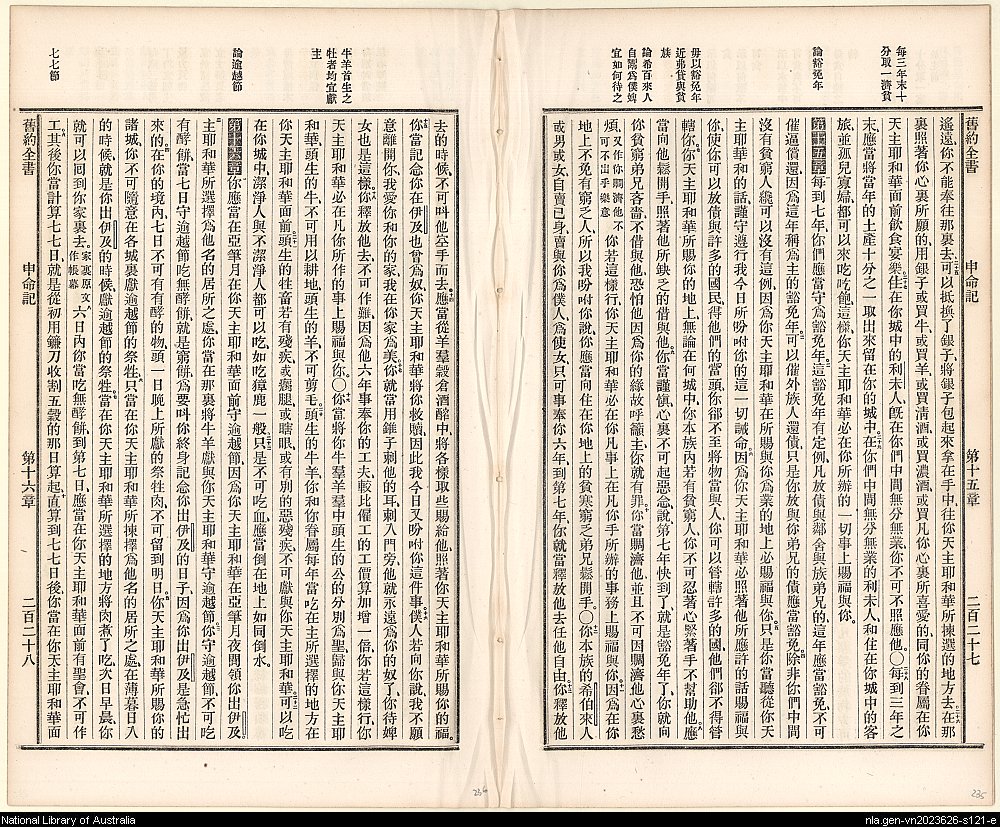 每三年末十
分取一濟貧
論豁免年
毋以豁免年
近弗貸與貧
族
論希百來人
自鬻爲僕婢
宜如何待之
舊約全書 申命記 第十五章 二百二十七
遙遠、你不能奉往那裏去、可以抵換了銀子、將銀子包起來拿在手中、往你天主耶和華所揀選的地方去、在那
裏照著你心裏所願的、用銀子或買牛、或買羊、或買清酒、或買濃酒、或買凡你心裏所喜愛的、同你的眷屬在你
天主耶和華面前飲食宴樂。住在你城中的利未人、旣在你們中間無分無業、你不可不照應他。〇每到三年之
末、應當將當年的土產十分之一取出來、留在你的城中。在你們中間無分無業的利未人、和住在你城中的客
旅、並孤兒寡婦、都可以來吃、吃飽、這樣、你天主耶和華必在你所辦的一切事上賜福與你。
第十五章 每到七年、你們應當守爲豁免年。這豁免年有定例、凡放債與鄰舍與族弟兄的、這年應當豁免、不可
催逼償還、因爲這年稱爲主的豁免年。可以催外族人還債、只是你放與你弟兄的債應當豁免。除非你們中間
沒有貧窮人、纔可以沒有這例、因爲你天主耶和華在所賜與你爲業的地上、必賜福與你。只是你當聽從你天
主耶和華的話、謹守遵行我今日所吩咐你的這一切誡命。因爲你天主耶和華必照著他所應許的話賜福與
你、使你可以放債與許多的國民、得他們的當頭、你卻不至將物當與人、你可以管轄許多的國、他們卻不得管
轄你。你天主耶和華所賜你的地上、無論在何城中、你本族內若有貧窮人、你不可忍著心、緊著手、不幫助他。應
當向他鬆開手、照著他所缺乏的借與他。你當謹愼、心裏不可起惡念、說、第七年快到了、就是豁免年了、你就向
你貧窮弟兄吝嗇、不借與他、恐怕他因爲你的緣故呼籲主、你就有罪。你當賙濟他、並且不可因賙濟他心裏愁
煩、又作你賙濟他不可不出乎樂意你若這樣行、你天主耶和華必在地上、在凡你手所辦的事務上賜福與你。因爲在你
地上不免有窮乏之人、所以我吩咐你說、你應當向住在你地上的貧寒窮乏之弟兄鬆開手。〇你本族的希伯來人、
或男或女、自賣己身、賣與你爲僕人、爲使女、只可事奉你六年、到第七年、你就當釋放他去、任他自由。你釋放他
牛羊首生之
牡者均宜獻
主
論逾越節
七七節
去的時候、不可叫他空手而去。應當從羊羣穀倉酒醡中、將各樣取些賜給他、照著你天主耶和華所賜你的福。
你當記念你在伊及也曾爲奴、你天主耶和華將你救贖、因此我今日又吩咐你這件事。僕人若向你說、我不願
意離開你、我愛你和你的家、我在你家爲美。你就當用錐子刺他的耳、刺入門旁、他就永遠爲你的奴了、你待婢
女也是這樣。你釋放他去、不可作難、因爲他六年事奉你的工夫、較比僱工的工價、算加增一倍、你若這樣行、你
天主耶和華必在凡你所作的事上賜福與你。〇你當將你牛羣羊羣中頭生的公的、分別爲聖、歸與你天主耶
和華、頭生的牛、不可用以耕地、頭生的羊、不可剪毛。頭生的牛羊、你和你眷屬每年當吃在主所選擇的地方、在
你天主耶和華面前。頭生的牲畜、若有殘疾、或瘸腿、或瞎眼、或有別的惡殘疾、不可獻與你天主耶和華。可以吃
在你城中、潔淨人與不潔淨人、都可以吃、如吃獐鹿一般。只是不可吃血、應當倒在地上如同倒水。
第十六章 你應當在亞筆月、在你天主耶和華面前守逾越節、因爲你天主耶和華在亞筆月夜間領你出伊及。
主耶和華所選擇爲他名的居所之處、你當在那裏將牛羊獻與你天主耶和華、守逾越節。你守逾越節、不可吃
有酵餅、當七日守逾越節、吃無酵餅、就是窮餅、爲要叫你終身記念你出伊及的日子、因爲你出伊及是急忙出
來的。在你的境內七日不可有有酵的物、頭一日晚上所獻的祭牲肉、不可留到明日。你天主耶和華所賜你的
諸城、你不可隨意在各城裏獻逾越節的祭牲。只當在你天主耶和華所揀擇爲他名的居所之處、在薄暮日入
的時候、就是你出伊及的時候、獻逾越節的祭牲。當在你天主耶和華所選擇的地方將肉煮了吃、次日早晨、你
就可以囘到你家裏去。家裏原文作帳幕六日內你當吃無酵餅、到第七日、應當在你天主耶和華面前有聖會、不可作
工。其後你當計算七七日、就是從初用鐮刀收割五穀的那日算起、直算到七七日後、你當在你天主耶和華面
舊約全書 申命記 第十六章 二百二十八
236
235
National Library of Australia
nla.gen-vn2023626-s121-e